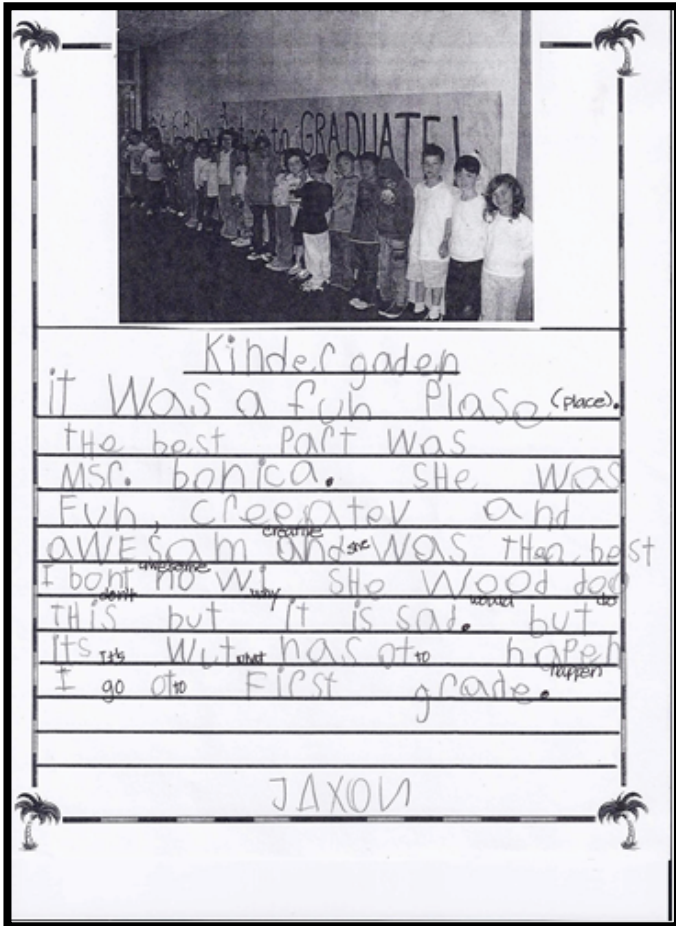 to GRADUATE!
Kindergaden
it was a fun Plase (place).
THe best Part was
MSr. bonica. SHe was
Fun, creeatev and
creative
awESam and she was THen best
awesome
I bont no wi SHe wood doo
don't why would do
THis but it is sad. but
Its It's wut what has ot to hapen
happen
I go ot to First grade.
JAXON